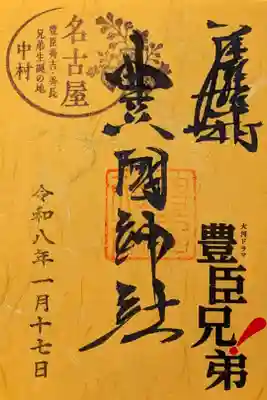 奉拝
豊國神社
大河ドラマ
豊臣兄弟!
名古屋
豊臣秀吉・秀長
兄弟生誕の地
中村
令和八年一月十七日